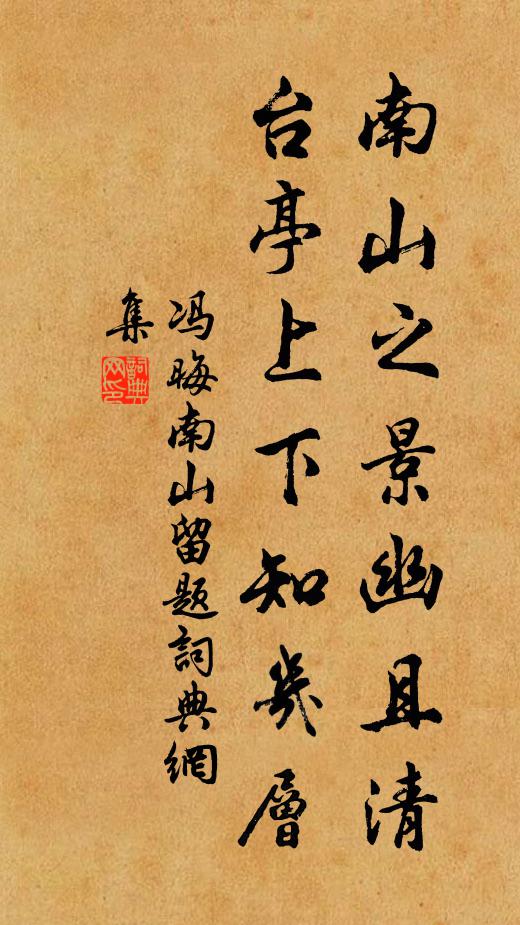 南山之景幽且清
台亭上下知幾層
冯晦南山留题詞典網
集
詞典
网印